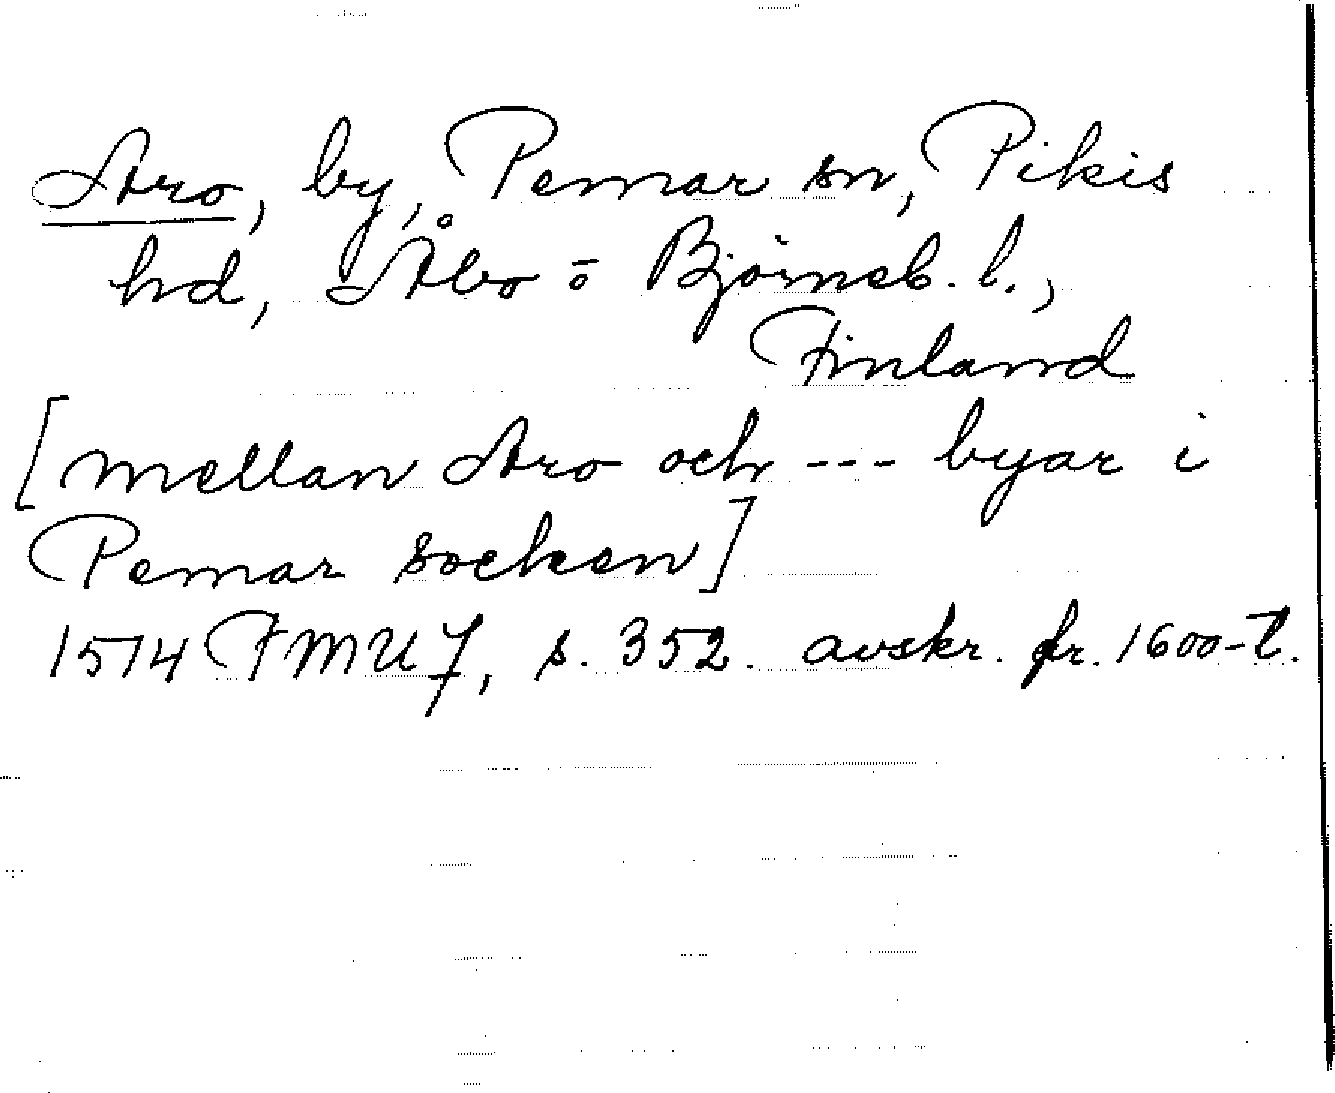 Aro, by, Pemar sn, Pikis
hd, Åbo o Björneb. l.,
Finland
[mellan Aro och --- byar i
Pemar socken]
1514 FMU 7, s. 352. avskr. fr. 1600-t.